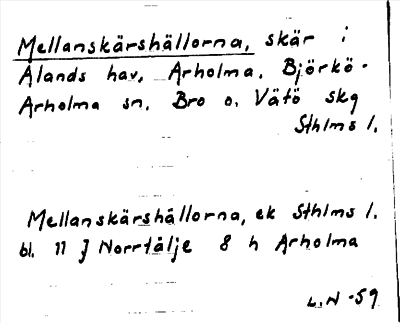 Mellanskärshällorna, skär i
Ålands hav, Arholma, Björkö-
Arholma sn, Bro o. Vätö skg
Sthlms l.
Mellanskärshällorna, ek Sthlms l.
bl. 11 J Norrtälje 8 h Arholma
L.N -59